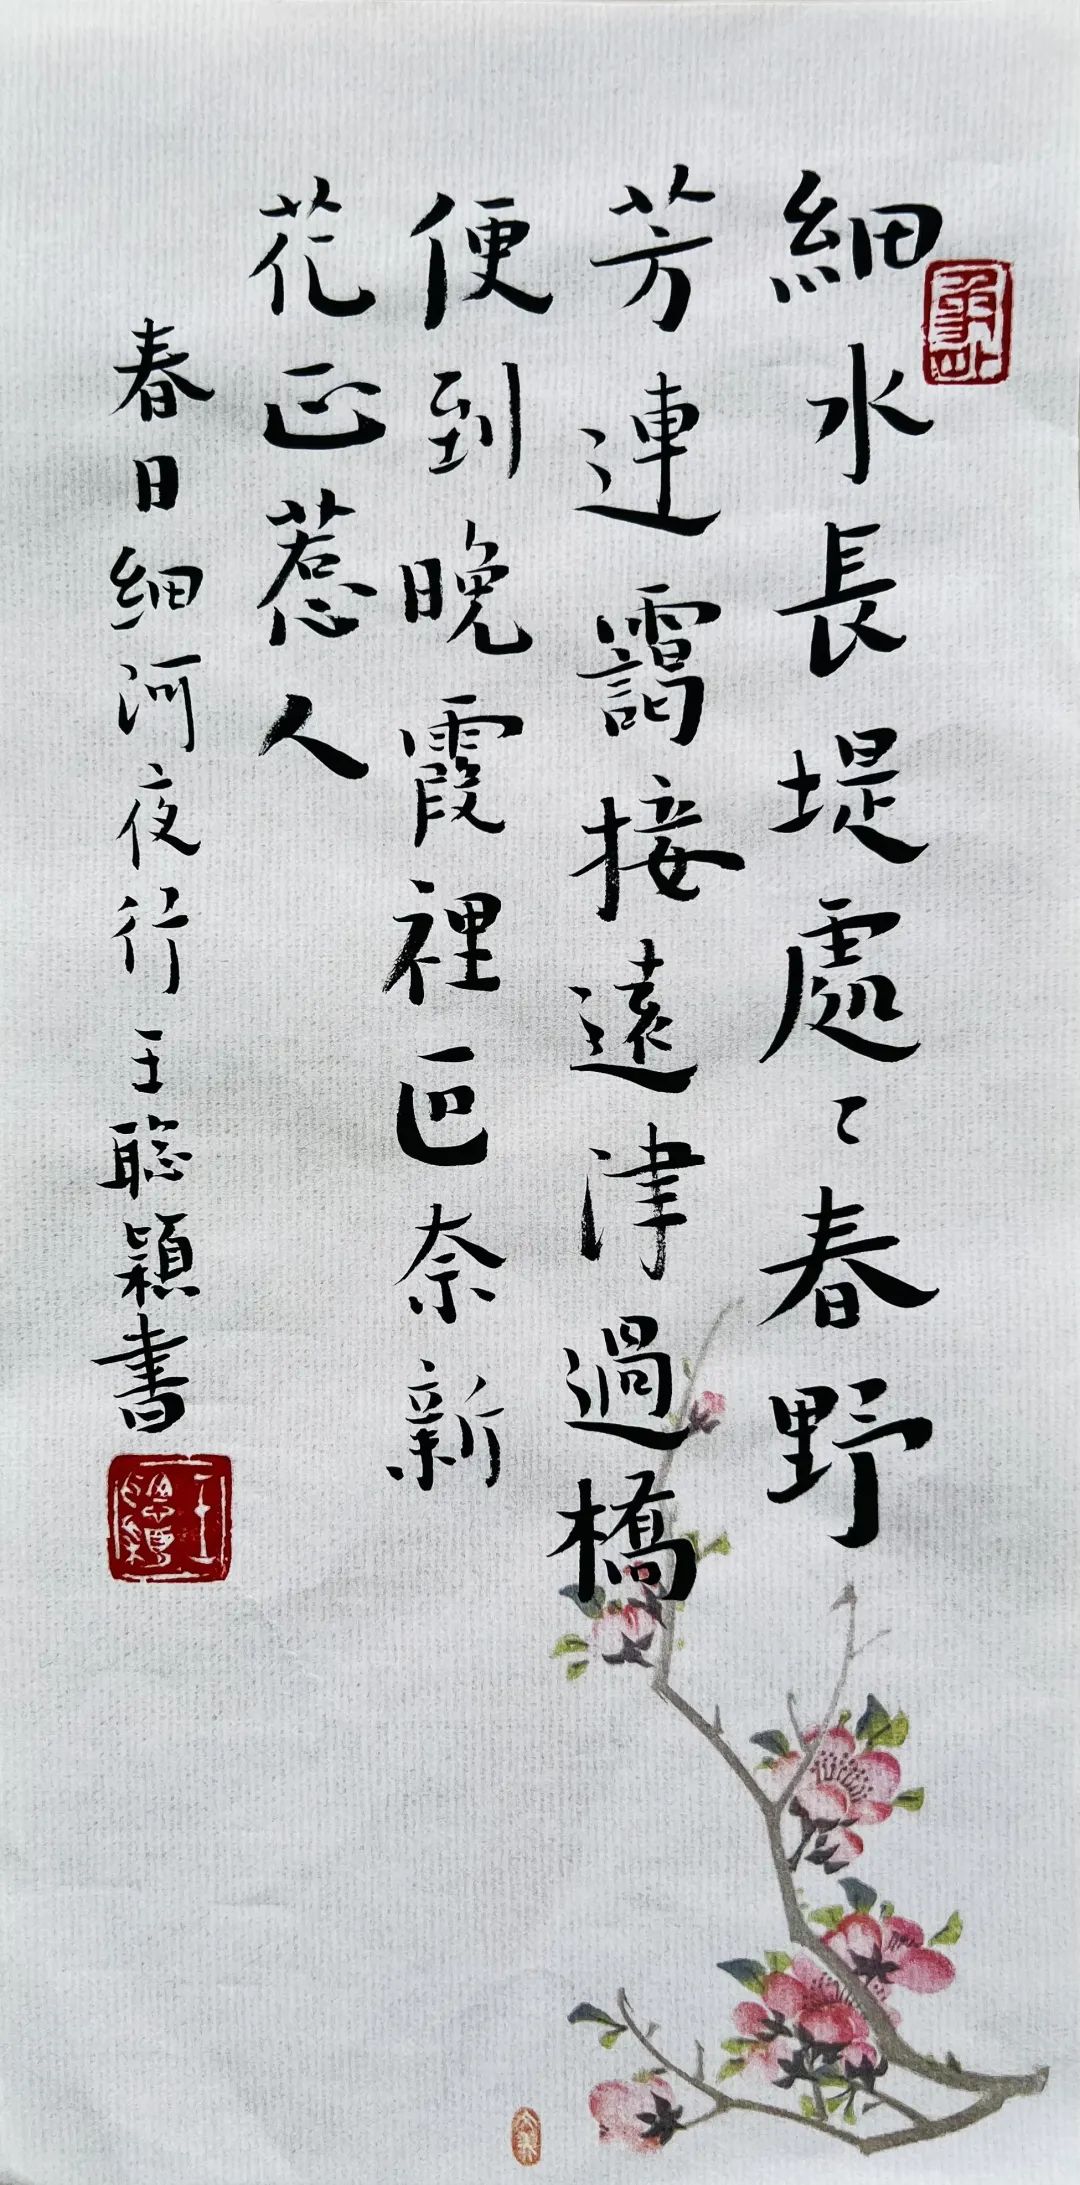 細水長堤處〻春野
芳連靄接遠津過橋
便到晚霞裡叵奈新
花正惹人
春日細河夜行王聡穎書